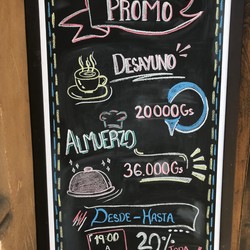 PROMO
DESAYUNO
20000Gs
ALMUERZO
36.000Gs
DESDE-HASTA
19:00
A
20%
TODA